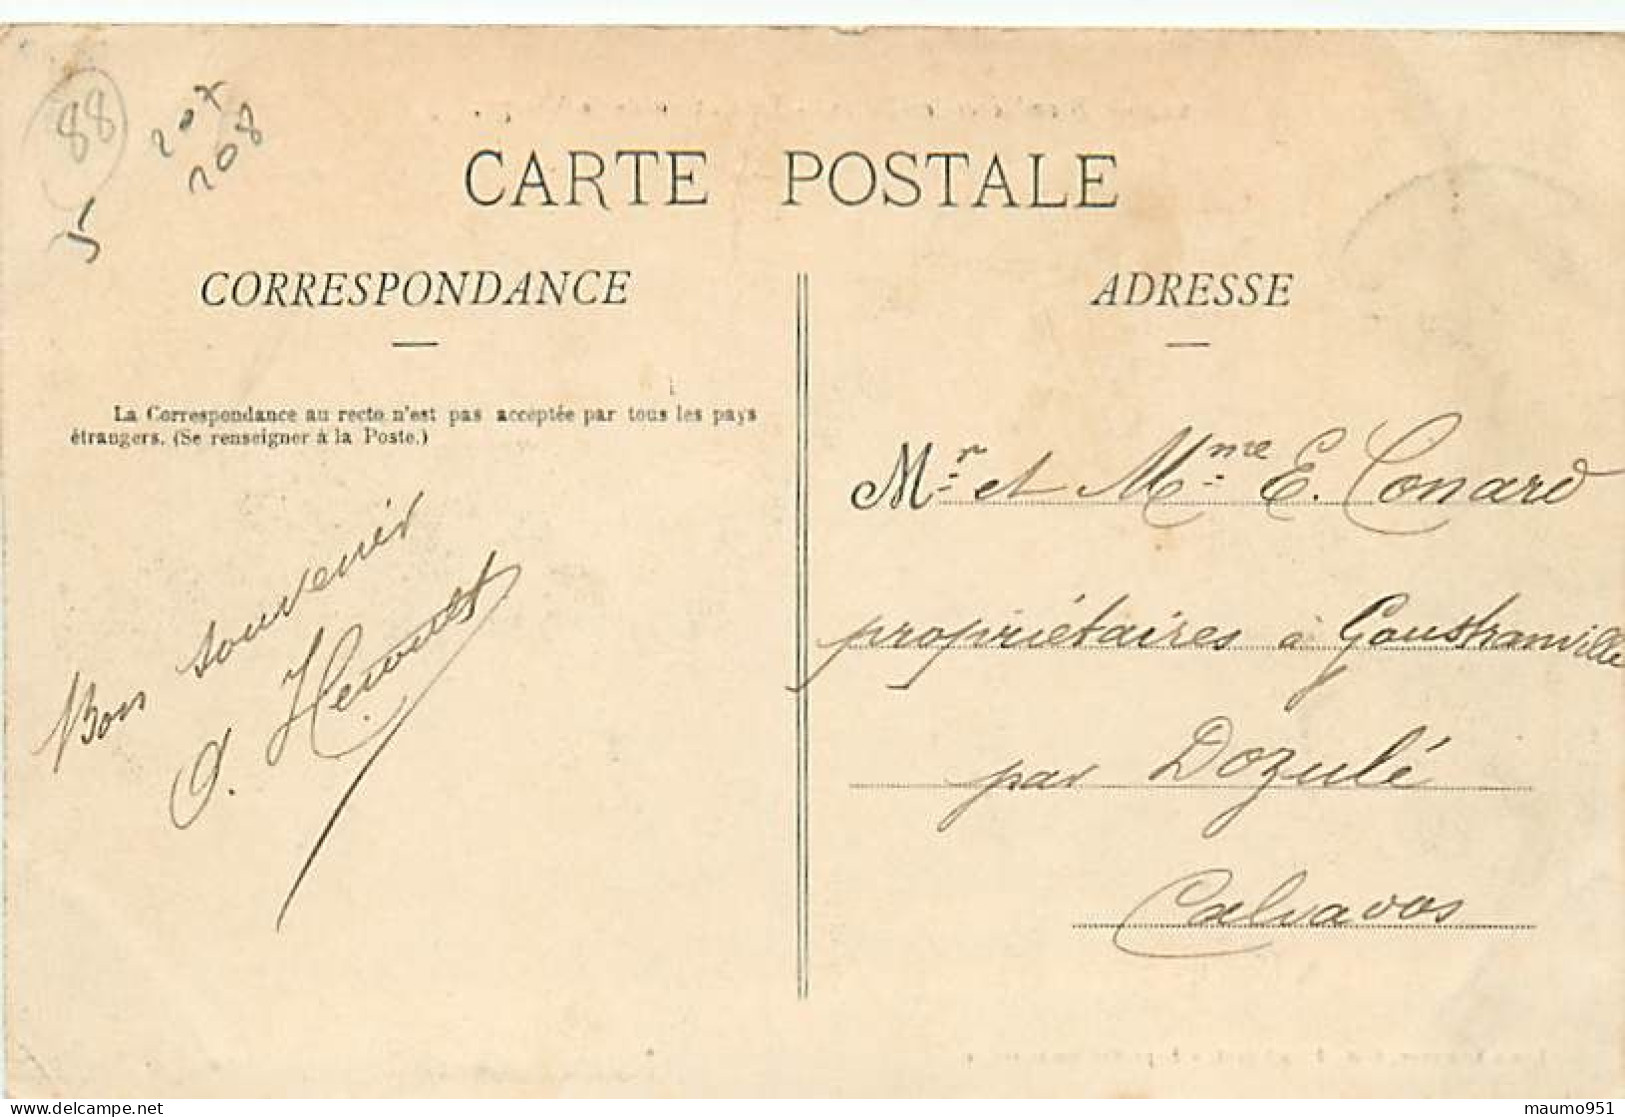 88
207
208
5
CARTE POSTALE
CORRESPONDANCE
La Correspondance au recto n'est pas acceptée par tous les pays
étrangers. (Se renseigner à la Poste.)
Bon souvenir
ADRESSE
Mr et Mme E. Conard
propriétaires à Goustranville
par Dozulé
Calvados
delcampe.net
maumo951